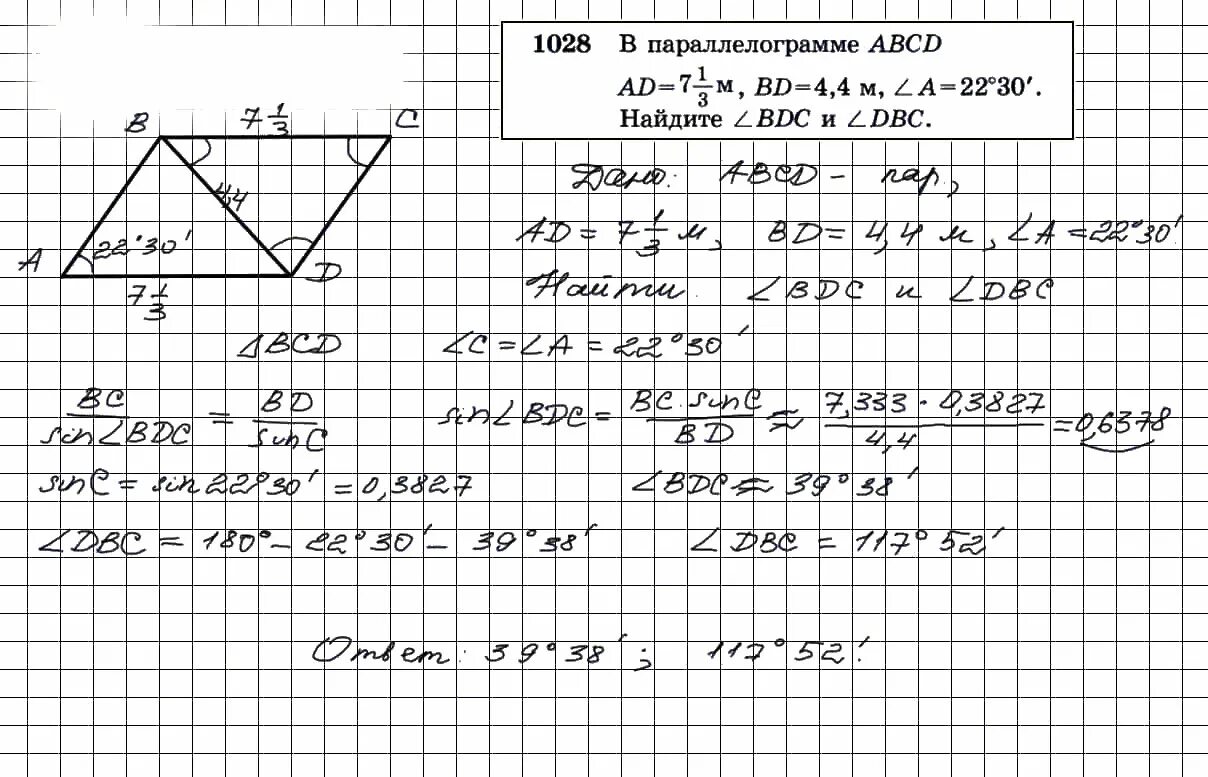 1028 В параллелограмме ABCD
AD=7 1/3 м, BD=4,4 м, ∠A=22°30′.
Найдите ∠BDC и ∠DBC.
B 7 1/3 C
4,4
A 22°30′ D
7 1/3
Дано: ABCD – пар,
AD = 7 1/3 м, BD = 4,4 м, ∠A = 22°30′
Найти. ∠BDC и ∠DBC
△BCD ∠C = ∠A = 22°30′
BC/sin∠BDC = BD/sinC sin∠BDC = BC·sinC/BD ≈ 7,333·0,3827/4,4 = 0,6378
sinC = sin22°30′ = 0,3827 ∠BDC ≈ 39°38′
∠DBC = 180° – 22°30′ – 39°38′ ∠DBC = 117°52′
Ответ: 39°38′; 117°52′.